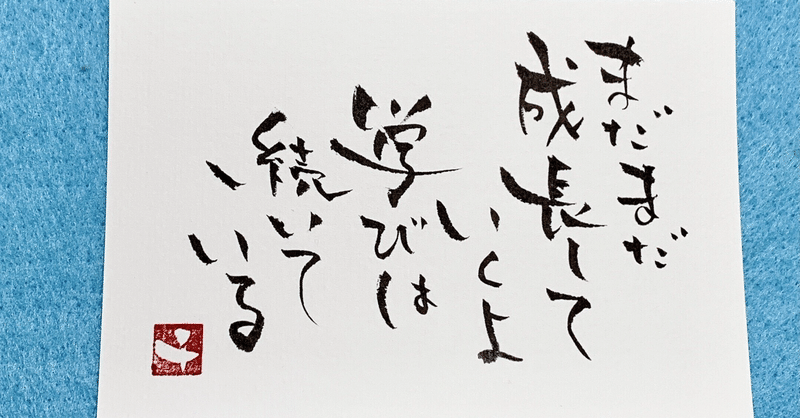 まだまだ
成長して
いくよ
学びは
続いて
いる